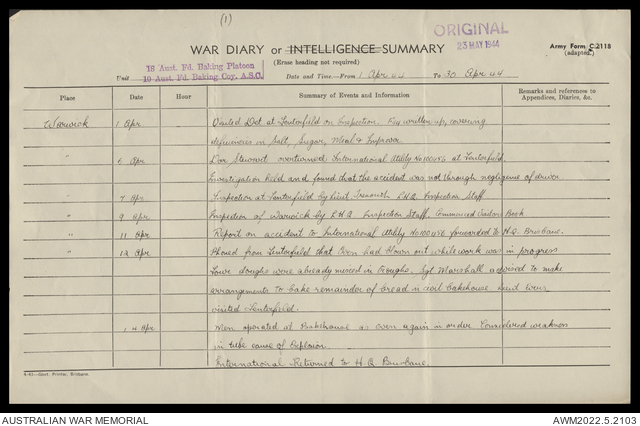 (1)
ORIGINAL
23 MAY 1944
WAR DIARY or INTELLIGENCE SUMMARY
Army Form C.2118
(adapted)
(Erase heading not required)
18 Aust. Fd. Baking Platoon
Unit 10 Aust. Fd. Baking Coy. A.S.C.
Date and Time—From 1 Apr 44 To 30 Apr 44
Place Date Hour Summary of Events and Information Remarks and references to Appendices, Diaries, &c.
Warwick 1 Apr Visited Det. at Tenterfield on Inspection. written up, covering
deficiencies in Salt, Sugar, Meal & Improver
" 6 Apr Dvr Stewart overturned International Utility No100486 at Tenterfield.
Investigation held and found that the accident was not through negligence of driver
" 7 Apr Inspection at Tenterfield by Lieut. LHQ Inspection Staff
" 9 Apr Inspection of Warwick by LHQ Inspection Staff. Commenced Visitors Book
" 11 Apr Report on accident to International Utility No100486 forwarded to H.Q. Brisbane.
" 12 Apr Phoned from Tenterfield that Oven had blown out while work was in progress
doughs were already mixed in troughs. Sgt Marshall advised to make
arrangements to bake remainder of bread in civil bakehouse.
visited Tenterfield.
14 Apr Men operated at Bakehouse as oven again in order. Considered weakness
in tube cause of Explosion.
International Returned to H.Q Brisbane.
4-43—Govt. Printer, Brisbane.
AUSTRALIAN WAR MEMORIAL
AWM2022.5.2103